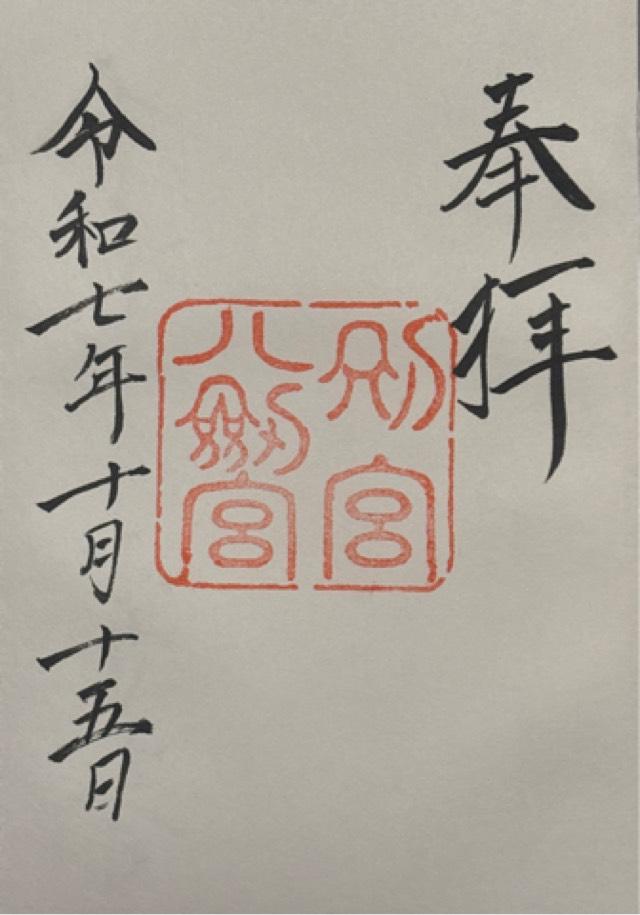 奉拝
別宮
八剱宮
令和七年十月十五日